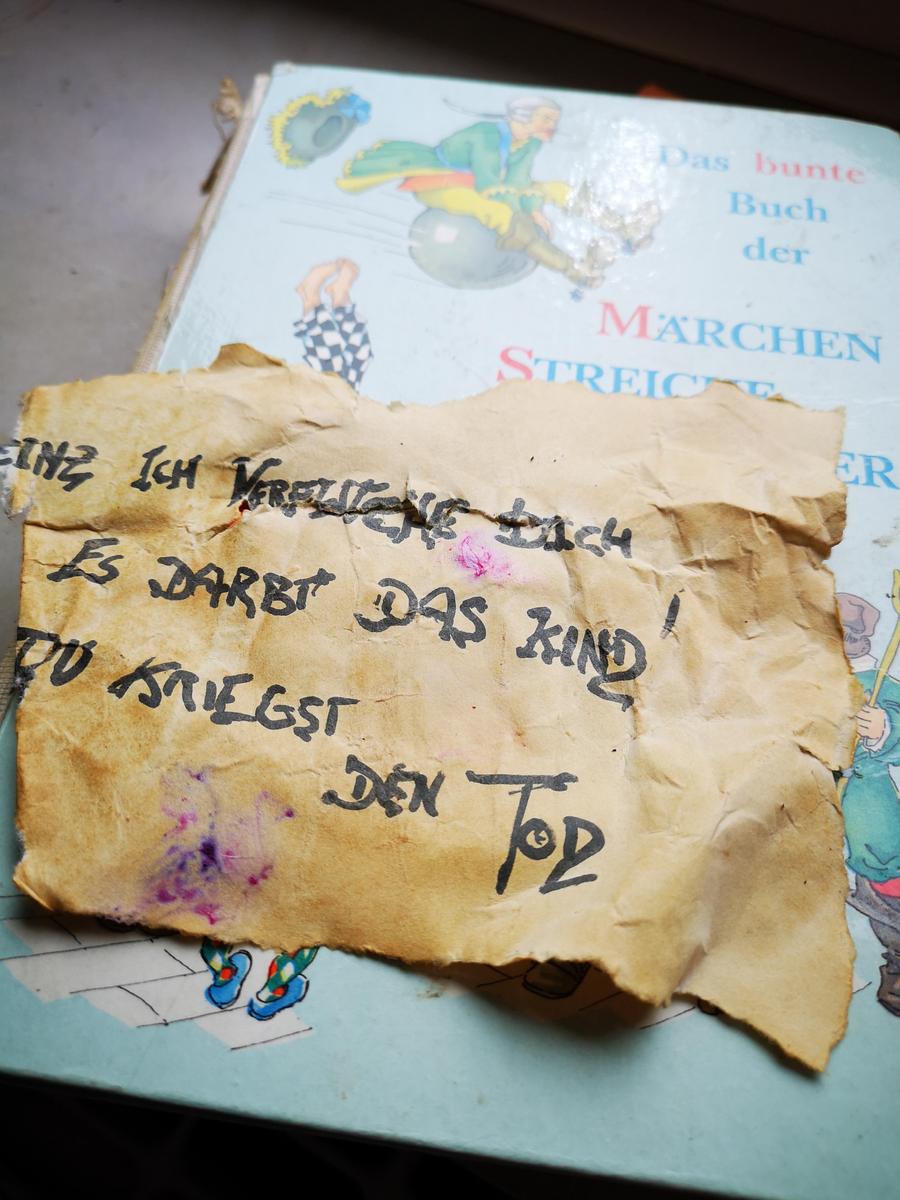 Das bunte
Buch
der
MÄRCHEN
STREICHE
ER
EINZ ICH DICH
ES DARBT DAS KIND!
DU KRIEGST
DEN TOD